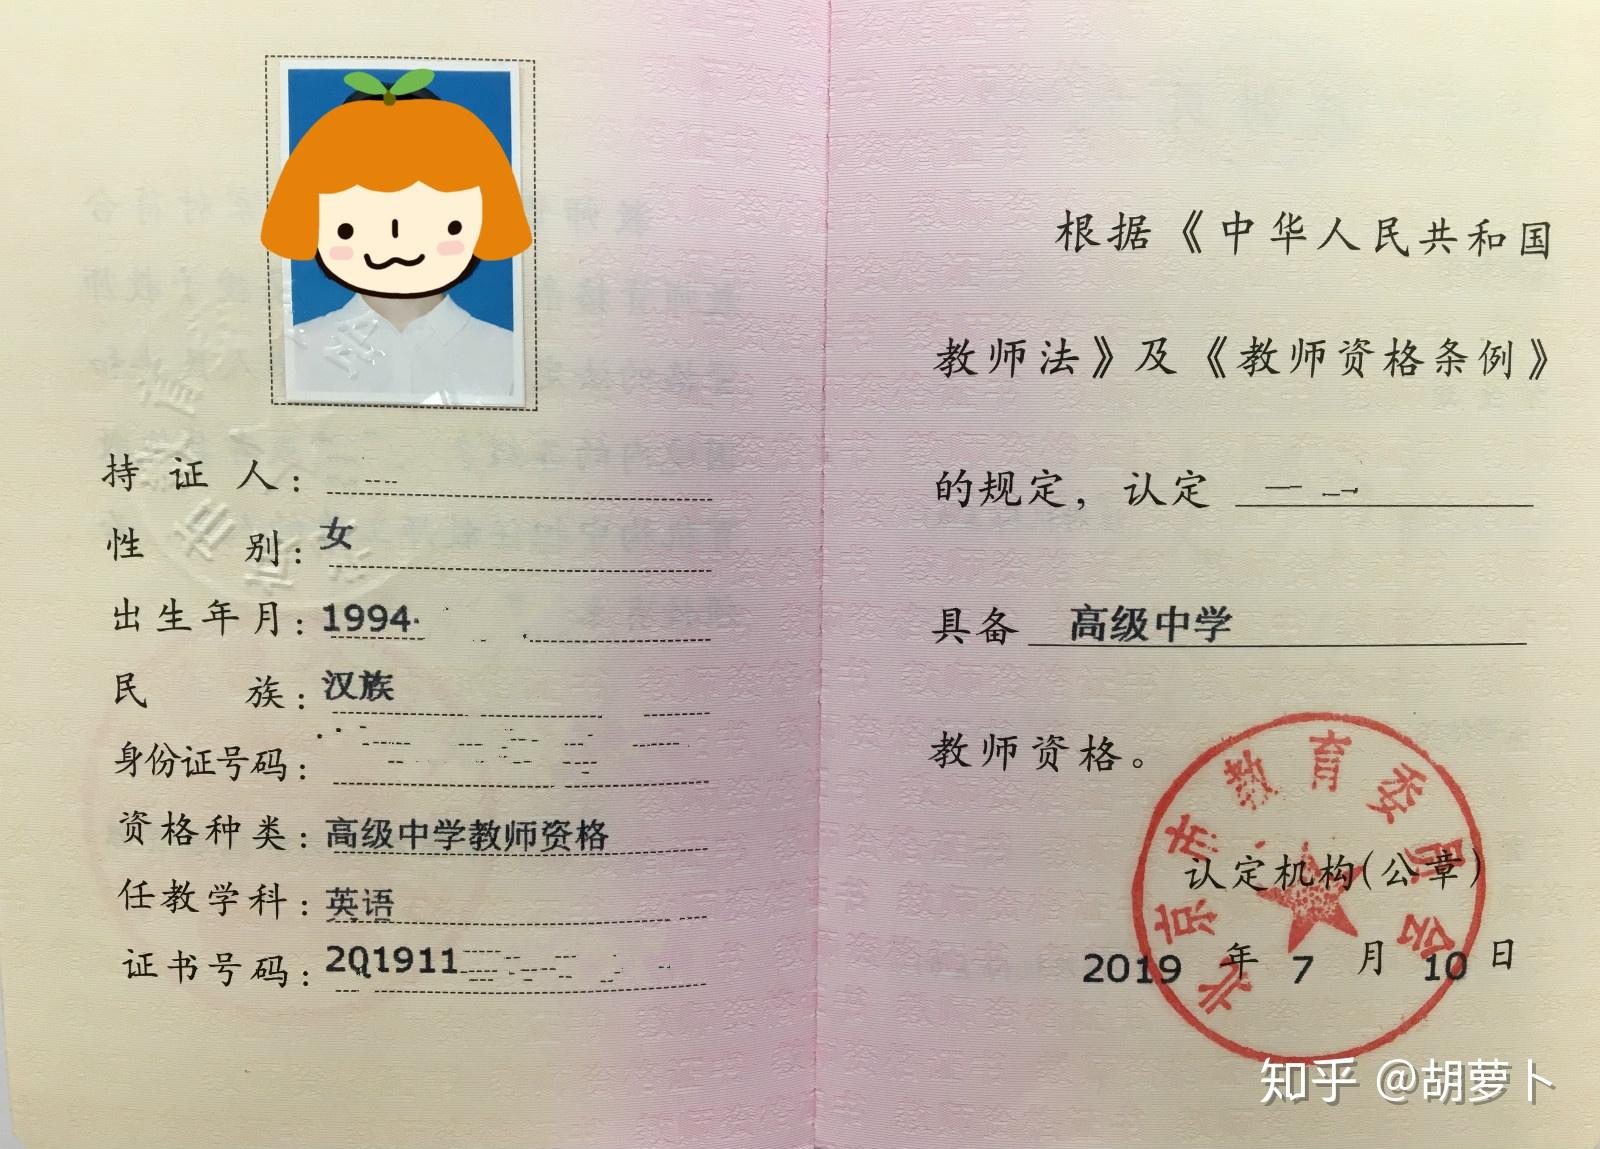 持证人：
性别：女
出生年月：1994
民族：汉族
身份证号码：
资格种类：高级中学教师资格
任教学科：英语
证书号码：201911
根据《中华人民共和国
教师法》及《教师资格条例》
的规定，认定
具备 高级中学
教师资格。
北京市教育委员会
认定机构(公章)
2019 年 7 月 10 日
知乎 @胡萝卜